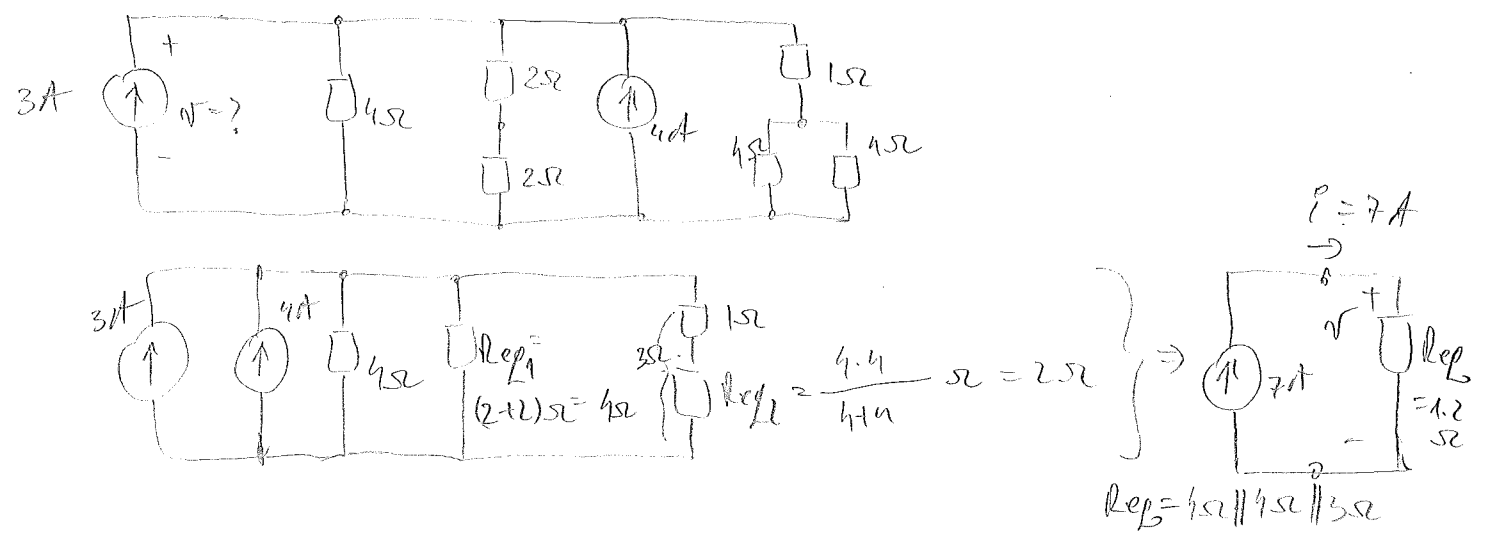 3A
+
v=?
-
4Ω
2Ω
2Ω
4A
1Ω
4Ω
4Ω
3A
4A
4Ω
Req1=
(2+2)Ω=4Ω
1Ω
3Ω
Req2 = 4.4/4+4 Ω = 2Ω
⇒
i=7A
→
7A
+
v
-
Req
=1.2
Ω
Req=4Ω||4Ω||3Ω